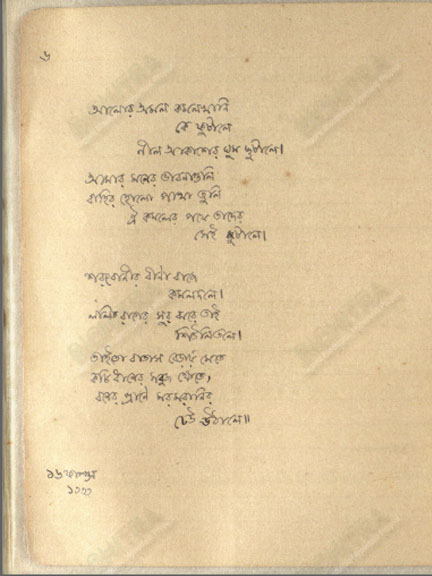 ৬
আলোর অমল কমলখানি
কে ফুটালে
নীল আকাশের ঘুম ছুটালে।
আমার মনের ভাবনাগুলি
বাহির হোলো পাখা তুলি
ঐ কমলের পথে তাদের
সেই জুটালে।
শরৎবাণীর বীণা বাজে
কমলদলে।
ললিতরাগের সুর ঝরে তাই
শিউলিতলে।
তাইতো বাতাস বেড়ায় মেতে
কচি ধানের সবুজ ক্ষেতে,
বনের প্রাণে মরমরানির
ঢেউ উঠালে॥
১৬ ফাল্গুন